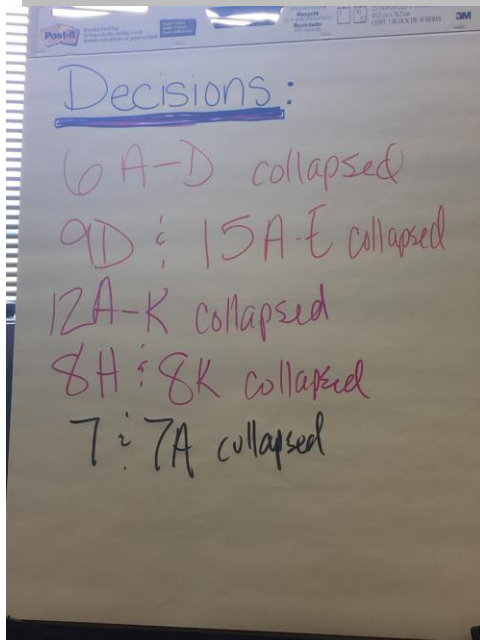 Post-it
3M
Decisions:
6A-D collapsed
9D & 15A-E collapsed
12A-K collapsed
8H & 8K collapsed
7 & 7A collapsed